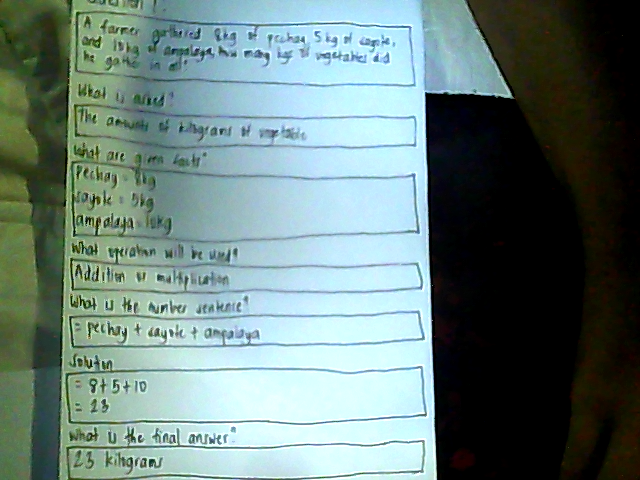 A farmer gathered 8kg of pechay, 5kg of sayote,
and 10kg of ampalaya, how many kgs of vegetables did
he gather in all?
What is asked?
The amounts of kilograms of vegetable
What are given facts?
Pechay = 8kg
sayote = 5kg
ampalaya = 10kg
What operation will be used?
Addition or multiplication
What is the number sentence?
= pechay + sayote + ampalaya
Solution
= 8+5+10
= 23
What is the final answer?
23 kilograms